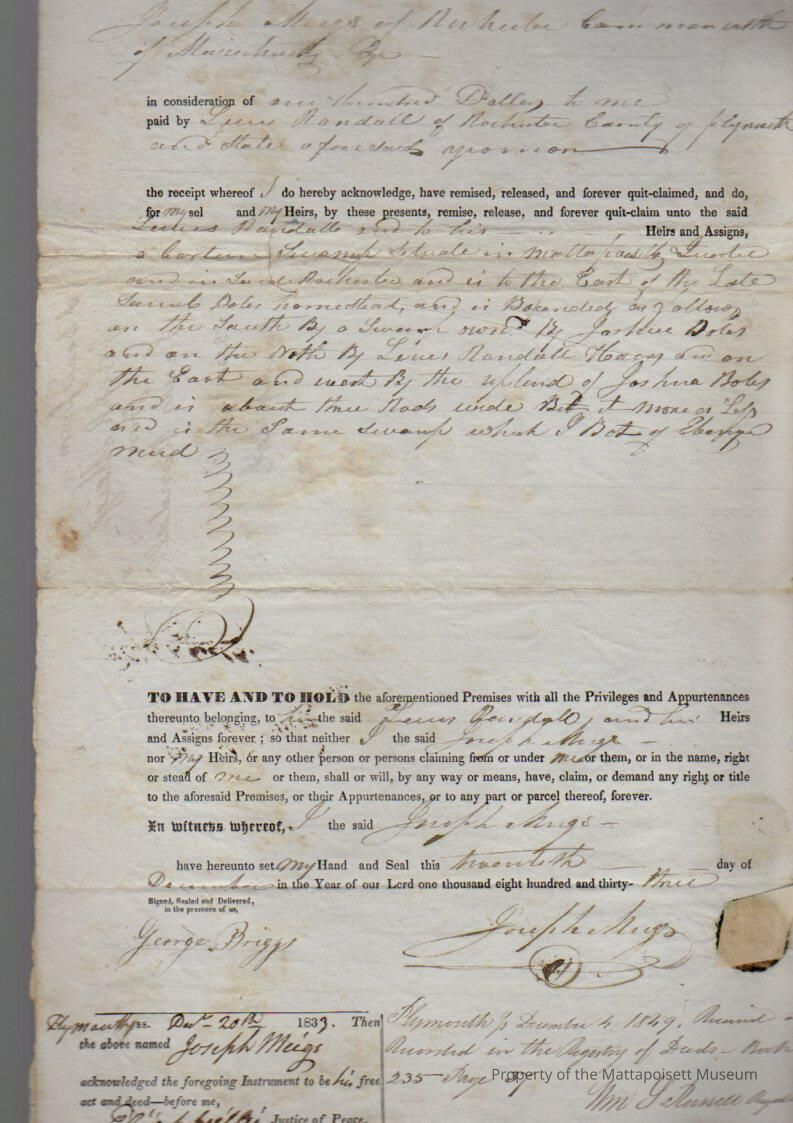 Joseph Meigs of Rochester Commonwealth
of Massachusetts
in consideration of one Hundred Dollars to me
paid by Lewis Randall of Rochester County of plymouth
and State aforesaid yeoman
the receipt whereof I do hereby acknowledge, have remised, released, and forever quit-claimed, and do,
for my sel and my Heirs, by these presents, remise, release, and forever quit-claim unto the said
Lewis Randall and to his Heirs and Assigns,
a certain Swamp Situate in
and in Rochester and is to the East of the Late
homestead, and is Bounded as follows
on the South By a Swamp own'd By
and on the North By Lewis Randall and on
the East and west By the upland of Joshua
and is about three Rods wide Be it more or Less
and is the Same Swamp which I Bot of
TO HAVE AND TO HOLD the aforementioned Premises with all the Privileges and Appurtenances
thereunto belonging, to him the said Lewis Randall, and his Heirs
and Assigns forever ; so that neither I the said Joseph Meigs
nor my Heirs, or any other person or persons claiming from or under me or them, or in the name, right
or stead of me or them, shall or will, by any way or means, have, claim, or demand any right or title
to the aforesaid Premises, or their Appurtenances, or to any part or parcel thereof, forever.
In witness whereof, I the said Joseph Meigs
have hereunto set my Hand and Seal this twentieth day of
December in the Year of our Lord one thousand eight hundred and thirty- three
Signed, Sealed and Delivered,
in the presence of us,
George Briggs
Joseph Meigs
Plymouth ss. Decr 20th 1833. Then
the above named Joseph Meigs
acknowledged the foregoing Instrument to be his free
act and deed—before me,
Justice of Peace.
Plymouth ss December 4 1849. Received &
Recorded in the Registry of Deeds - Book
235 Page
Wm S Russell
Property of the Mattapoisett Museum